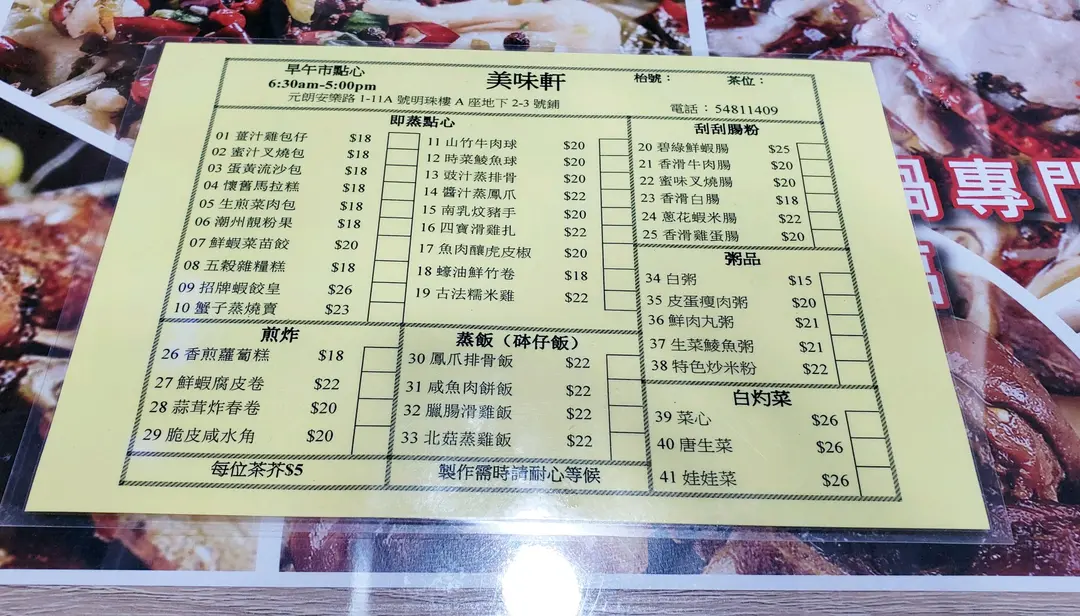 早午市點心
6:30am-5:00pm
美味軒
枱號：
茶位：
元朗安樂路 1-11A 號明珠樓 A 座地下 2-3 號鋪
電話：54811409
即蒸點心
01 薑汁雞包仔 $18
02 蜜汁叉燒包 $18
03 蛋黃流沙包 $18
04 懷舊馬拉糕 $18
05 生煎菜肉包 $18
06 潮州靚粉果 $18
07 鮮蝦菜苗餃 $20
08 五穀雜糧糕 $18
09 招牌蝦餃皇 $26
10 蟹子蒸燒賣 $23
11 山竹牛肉球 $20
12 時菜鯪魚球 $20
13 豉汁蒸排骨 $20
14 醬汁蒸鳳爪 $22
15 南乳炆豬手 $20
16 四寶滑雞扎 $22
17 魚肉釀虎皮椒 $20
18 蠔油鮮竹卷 $18
19 古法糯米雞 $22
刮刮腸粉
20 碧綠鮮蝦腸 $25
21 香滑牛肉腸 $20
22 蜜味叉燒腸 $20
23 香滑白腸 $18
24 蔥花蝦米腸 $22
25 香滑雞蛋腸 $20
粥品
34 白粥 $15
35 皮蛋瘦肉粥 $20
36 鮮肉丸粥 $21
37 生菜鯪魚粥 $21
38 特色炒米粉 $22
煎炸
26 香煎蘿蔔糕 $18
27 鮮蝦腐皮卷 $22
28 蒜茸炸春卷 $20
29 脆皮咸水角 $20
蒸飯（砵仔飯）
30 鳳爪排骨飯 $22
31 咸魚肉餅飯 $22
32 臘腸滑雞飯 $22
33 北菇蒸雞飯 $22
白灼菜
39 菜心 $26
40 唐生菜 $26
41 娃娃菜 $26
每位茶芥$5
製作需時請耐心等候
鍋專門